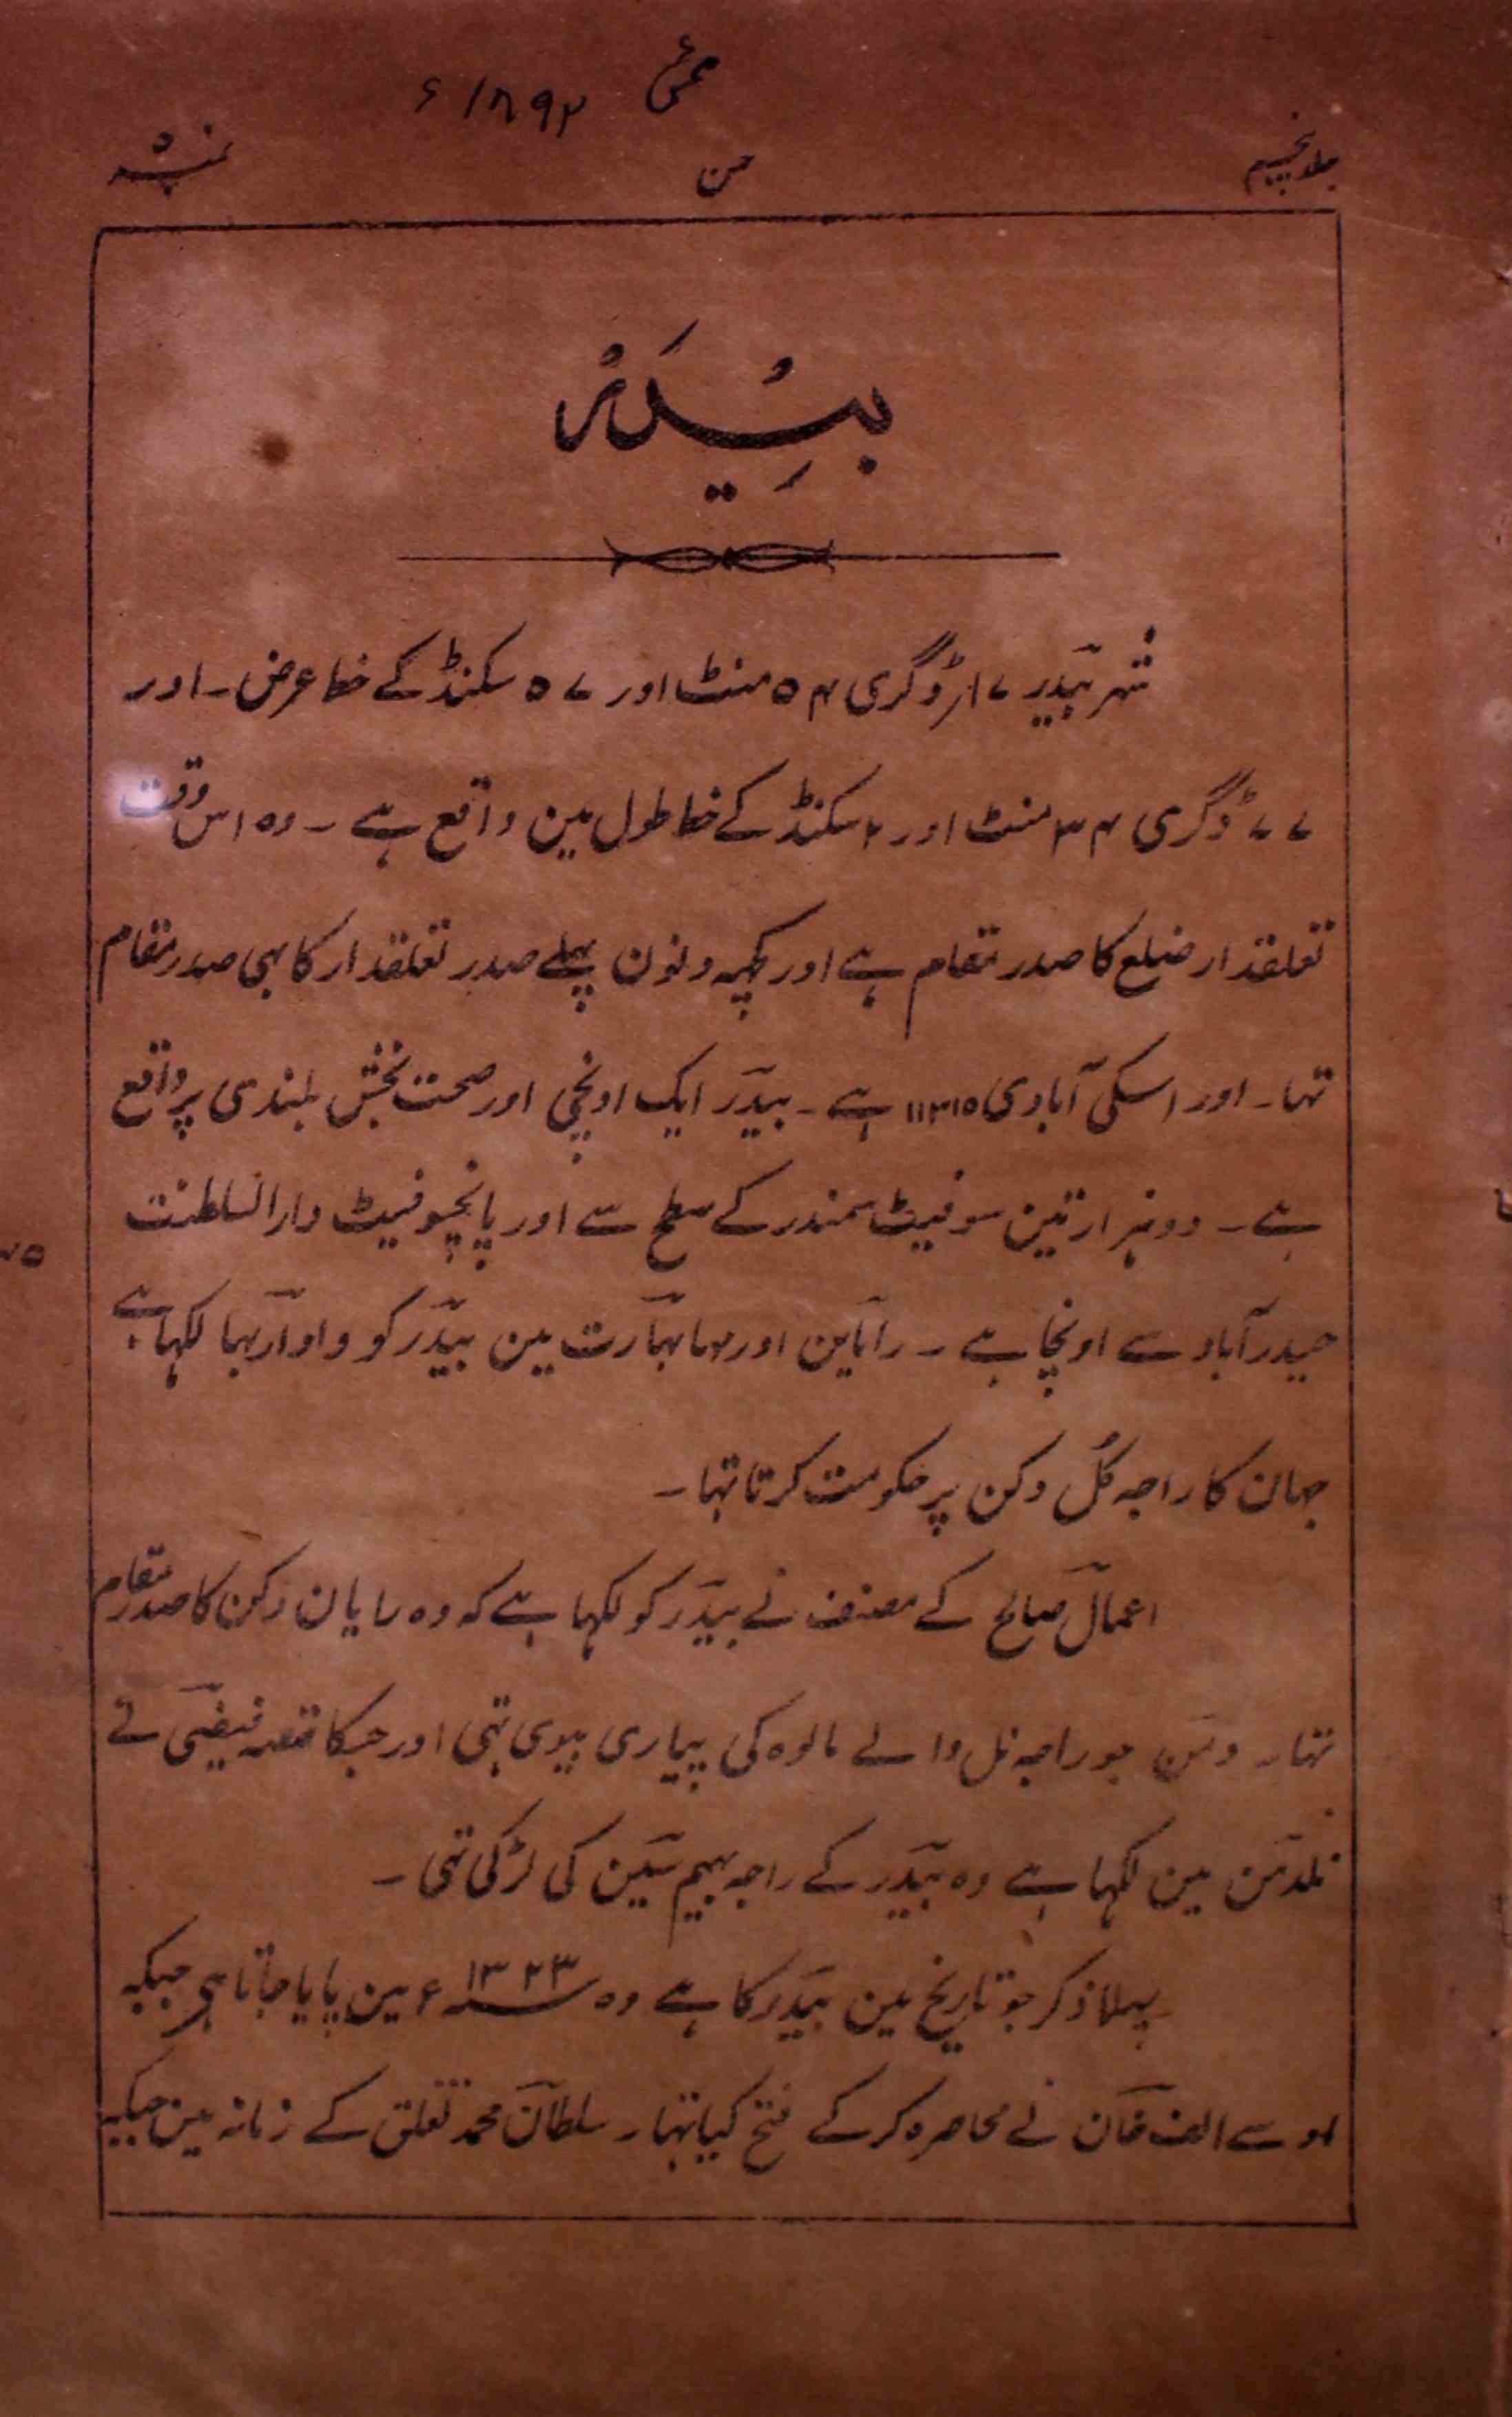 مئی ۱۸۹۲ ء
جلد پنجم حسن نمبر ۵
بیدر
شہر بیدر ۱۷ ڈگری ۵۴ منٹ اور ۵۷ سکنڈ کے خط عرض ۔ اور
۷۷ ڈگری ۳۴ منٹ اور ۲ سکنڈ کے خط طول مین واقع ہے ۔ وہ اس وقت
تعلقدار ضلع کا صدر مقام ہے اور کچہہ دنون پہلے صدر تعلقدار کا بہی صدر مقام
تہا ۔ اور اسکی آبادی ۱۱۳۱۵ ہے ۔ بیدر ایک اونچی اور صحت بخش بلندی پر واقع
ہے ۔ دو ہزار تین سو فیٹ سمندر کے سطح سے اور پانچسو فیٹ دار السلطنت
حیدرآباد سے اونچا ہے ۔ راماین اور مہابہارت مین بیدر کو لکہا ہے
جہان کا راجہ کُل دکن پر حکومت کرتا تہا ۔
اعمال صالح کے مصنف نے بیدر کو لکہا ہے کہ وہ رایان دکن کا صدر مقام
تہا ۔ دمن جو راجہ نل والے مالوہ کی پیاری بیوی تہی اور جسکا قصہ فیضی نے
نلدمن مین لکہا ہے وہ بیدر کے راجہ بہیم سین کی لڑکی تہی ۔
پہلا ذکر جو تاریخ مین بیدر کا ہے وہ سنہ ۱۳۲۳ ء مین پایا جاتا ہی جبکہ
اوسے الف خان نے محاصرہ کر کے فتح کیا تہا ۔ سلطان محمد تغلق کے زمانہ مین جبکہ